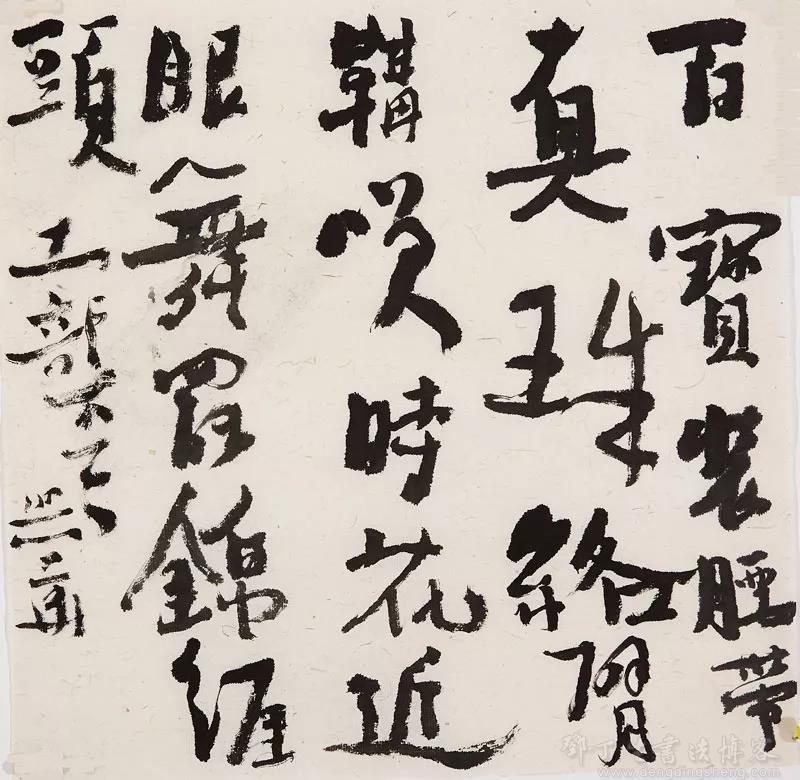 百寶裝腰帶
真珠絡臂
鞲咲時花近
眼舞罷錦纏
頭
鄧丁生書法博客
www.dengdingsheng.com